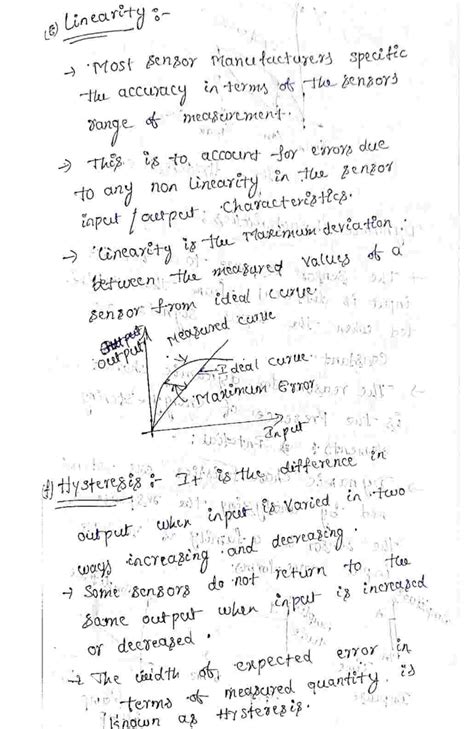 (e) Linearity :-
→ Most sensor manufacturers specific
the accuracy in terms of the sensors
range of measurement.
→ This is to account for errors due
to any non linearity in the sensor
input / output characteristics.
→ Linearity is the Maximum deviation
between the measured values of a
sensor from ideal curve.
output
Measured curve
Ideal curve
Maximum Error
Input
(f) Hysteresis :- It is the difference in
output when input is varied in two
ways increasing and decreasing.
→ Some sensors do not return to the
same output when input is increased
or decreased.
→ The width of expected error in
terms of measured quantity is
known as Hysteresis.